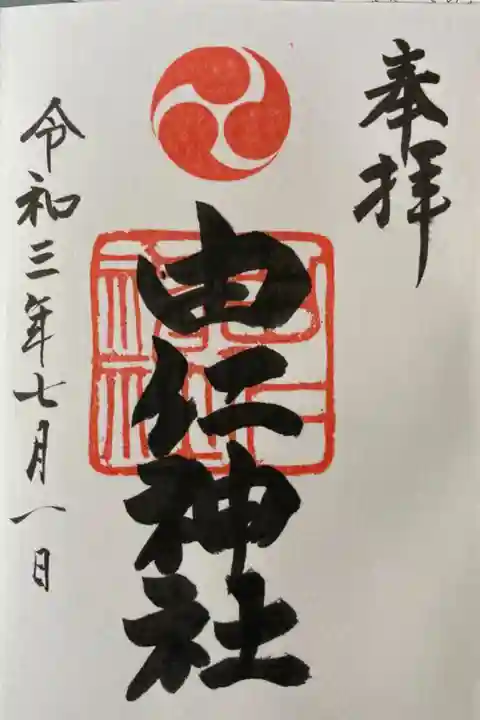 奉拝
由仁神社
令和三年七月一日